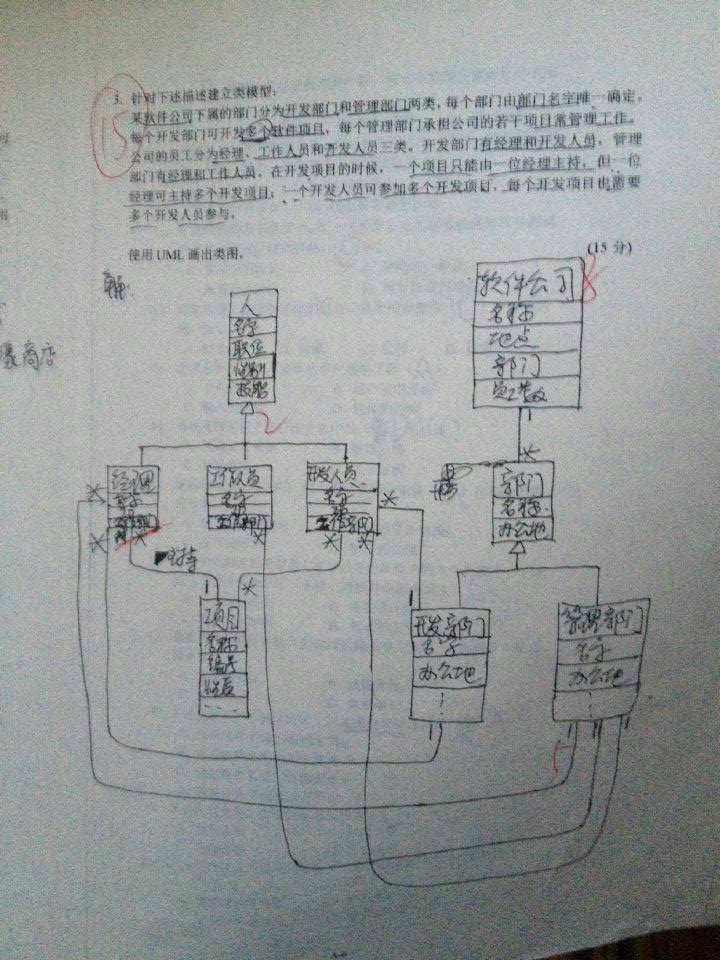 3. 针对下述描述建立类模型：
某软件公司下属的部门分为开发部门和管理部门两类，每个部门由部门名字唯一确定，
每个开发部门可开发多个软件项目，每个管理部门承担公司的若干项日常管理工作。
公司的员工分为经理、工作人员和开发人员三类。开发部门有经理和开发人员，管理
部门有经理和工作人员，在开发项目的时候，一个项目只能由一位经理主持，但一位
经理可主持多个开发项目，一个开发人员可参加多个开发项目，每个开发项目也需要
多个开发人员参与。
15
使用UML画出类图。 (15 分)
商店
人
名字
职位
性别
2
软件公司
名称
地点
部门
员工数
8
1
*
经理
工作人员
名字
开发人员
名字
部门
名称
办公地
*
*
*
*
*
*
*
主持
1
*
项目
名称
编号
性质
1
开发部门
名字
办公地
1
管理部门
名字
办公地
1
1
1
5